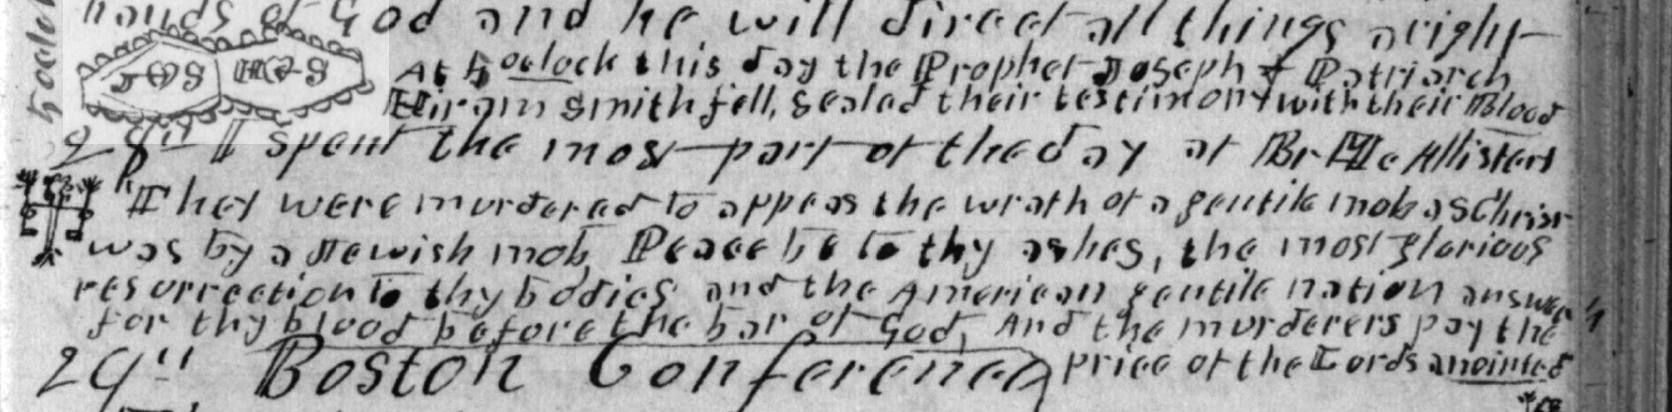 hands of God and he will direct all things aright
JS HS At 5 oclock this day the Prophet Joseph & Patriarch
Hiram Smith fell, sealed their testimony with their Blood
28" I spent the most part of the day at Br McAllisters
They were murdered to appeas the wrath of a gentile mob as Christ
was by a Jewish mob, Peace be to thy ashes, the most glorious
resurrection to thy bodies and the American gentile nation answer
for thy blood before the bar of God, And the murderers pay the
price of the Lords anointed
29" Boston Conference